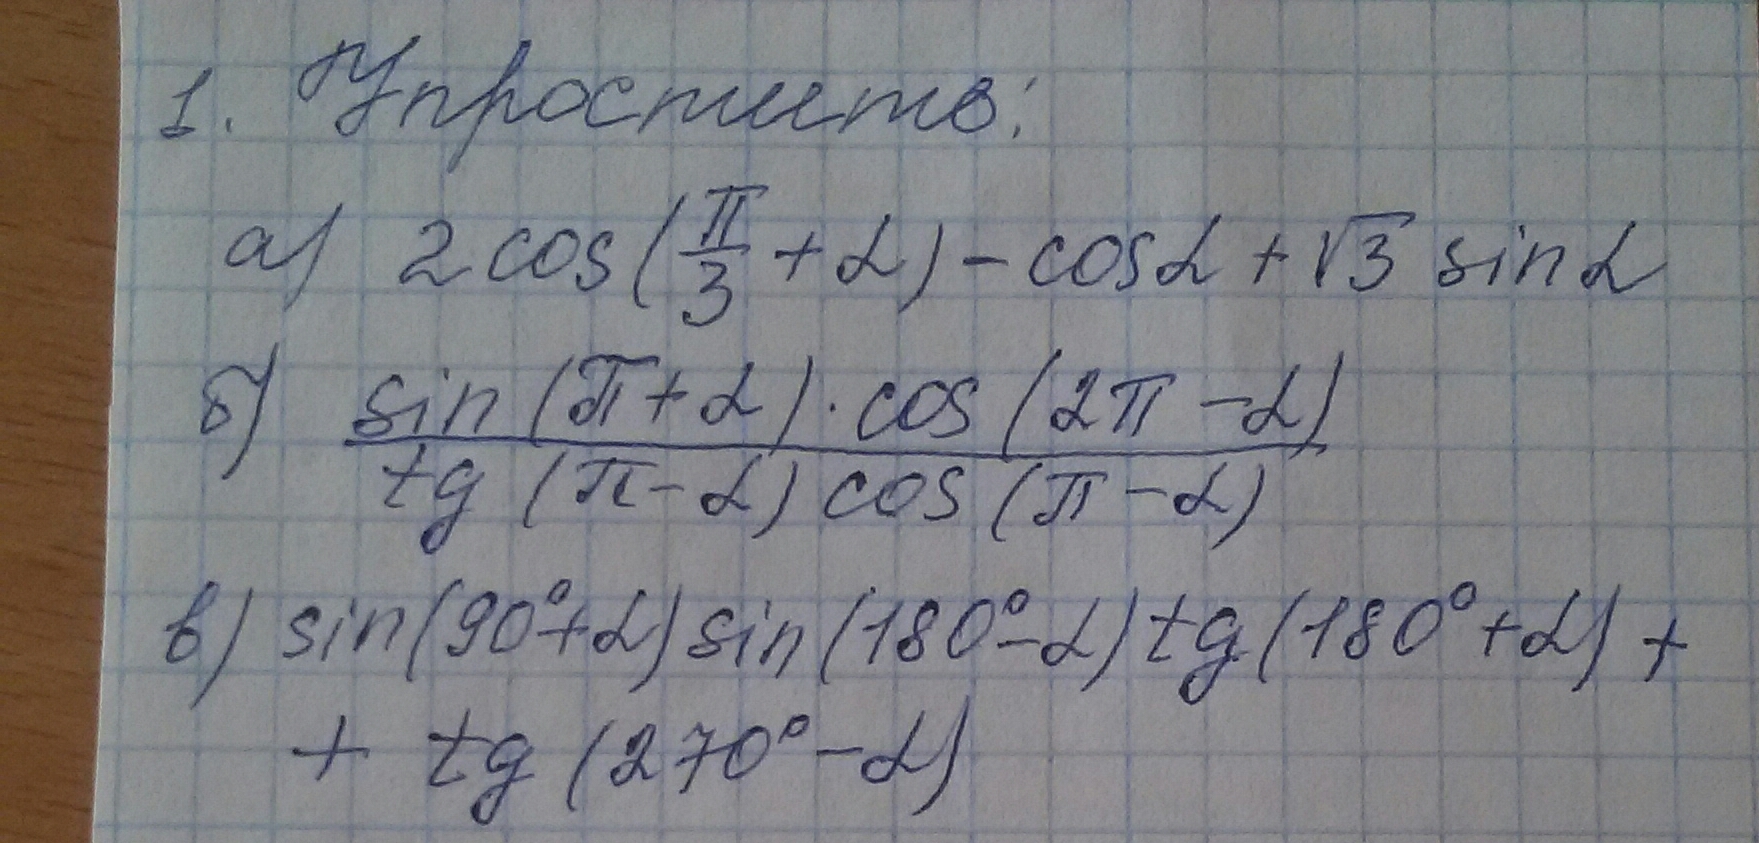 1. Упростить:
а) 2 cos(π/3 + α) - cosα + √3 sinα
б) sin(π+α)·cos(2π-α)
tg(π-α) cos(π-α)
в) sin(90°+α) sin(180°-α) tg(180°+α) +
+ tg(270°-α)